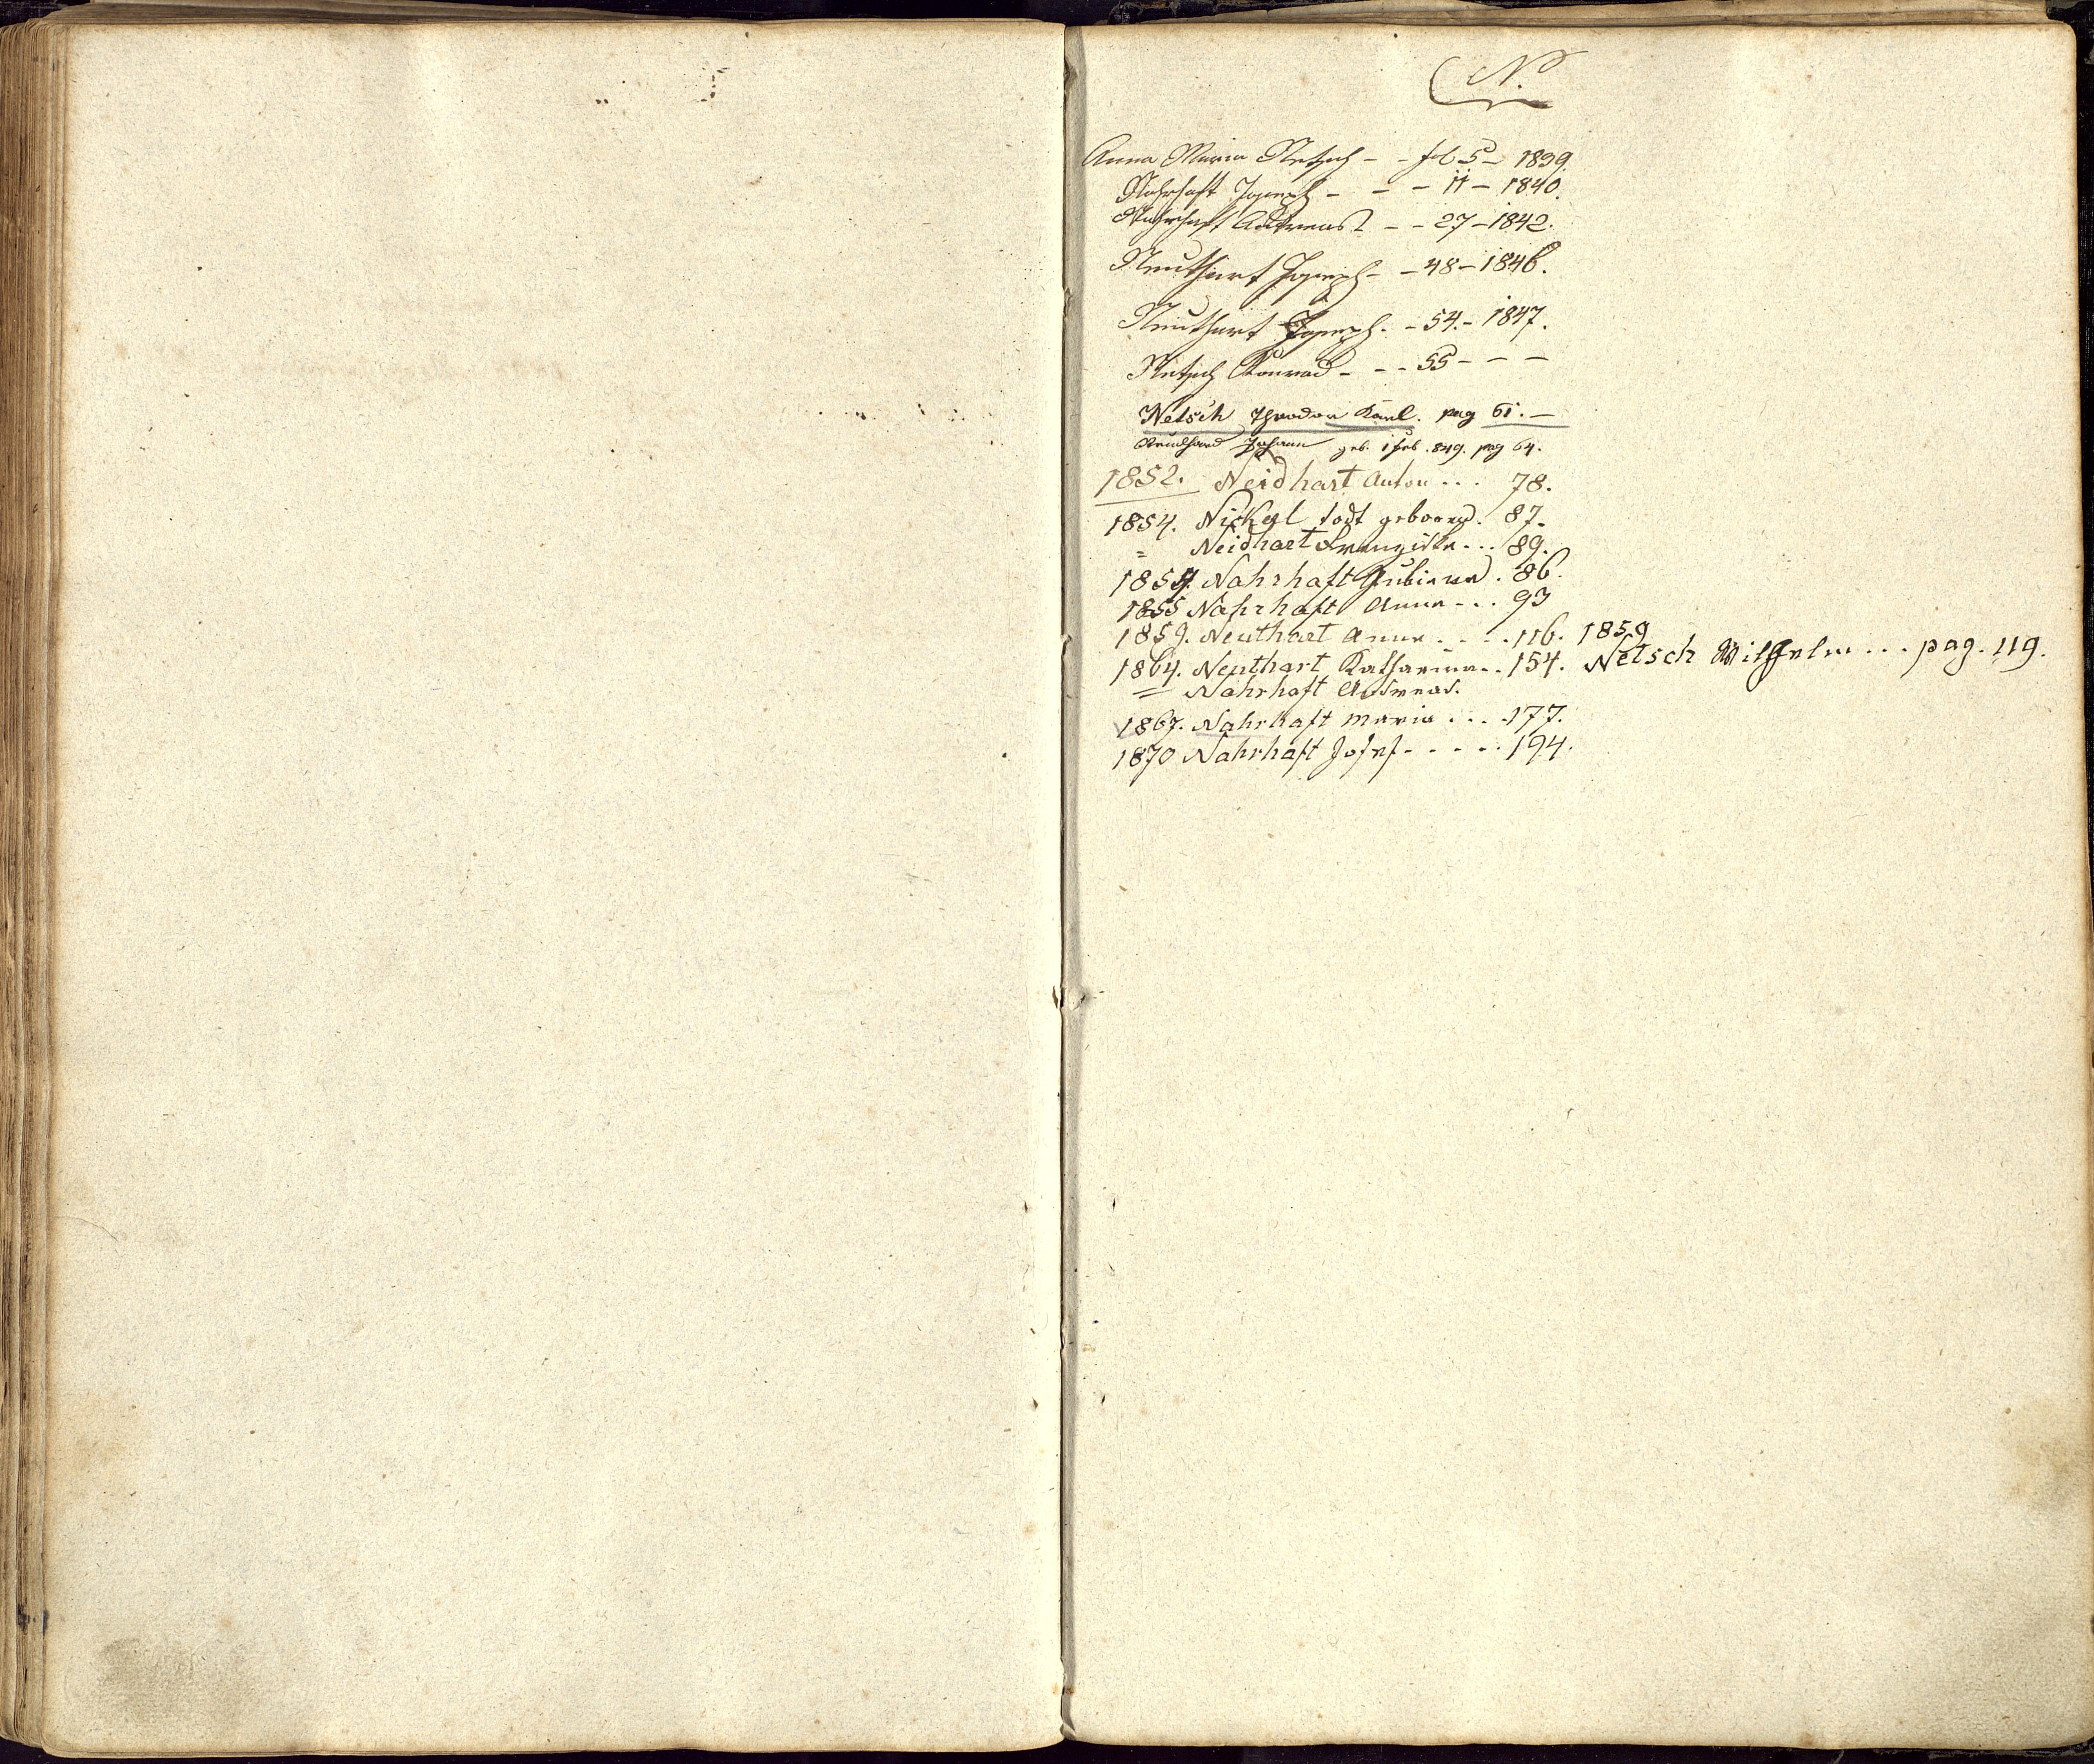 N.
Anna Maria Netsch - - fol 5 - 1839.
Nahrhaft Joseph - - - 11 - 1840.
Nahrhaft Andreas - - 27 - 1842.
Neuthart Joseph - - 48 - 1846.
Neuthart Joseph. - 54. - 1847.
Netsch Konrad - - - 55 - - -
Netsch Theodor Karl. pag 61. -
Johann geb. 1 Feb. 849. pag 64.
1852. Neidhart Anton . . . 78.
1854. Nickel todt geboren. 87.
= Neidhart Franziska . . . 89.
1854. Nahrhaft . 86.
1855 Nahrhaft Anna - . . 93
1859. Neuthart Anna . . . . 116.
1864. Neuthart Katharina . . 154.
= Nahrhaft Andreas.
1867. Nahrhaft Maria . . . . 177.
1870 Nahrhaft Josef - - - - . 194.
1859
Netsch Wilhelm . . . pag. 119.